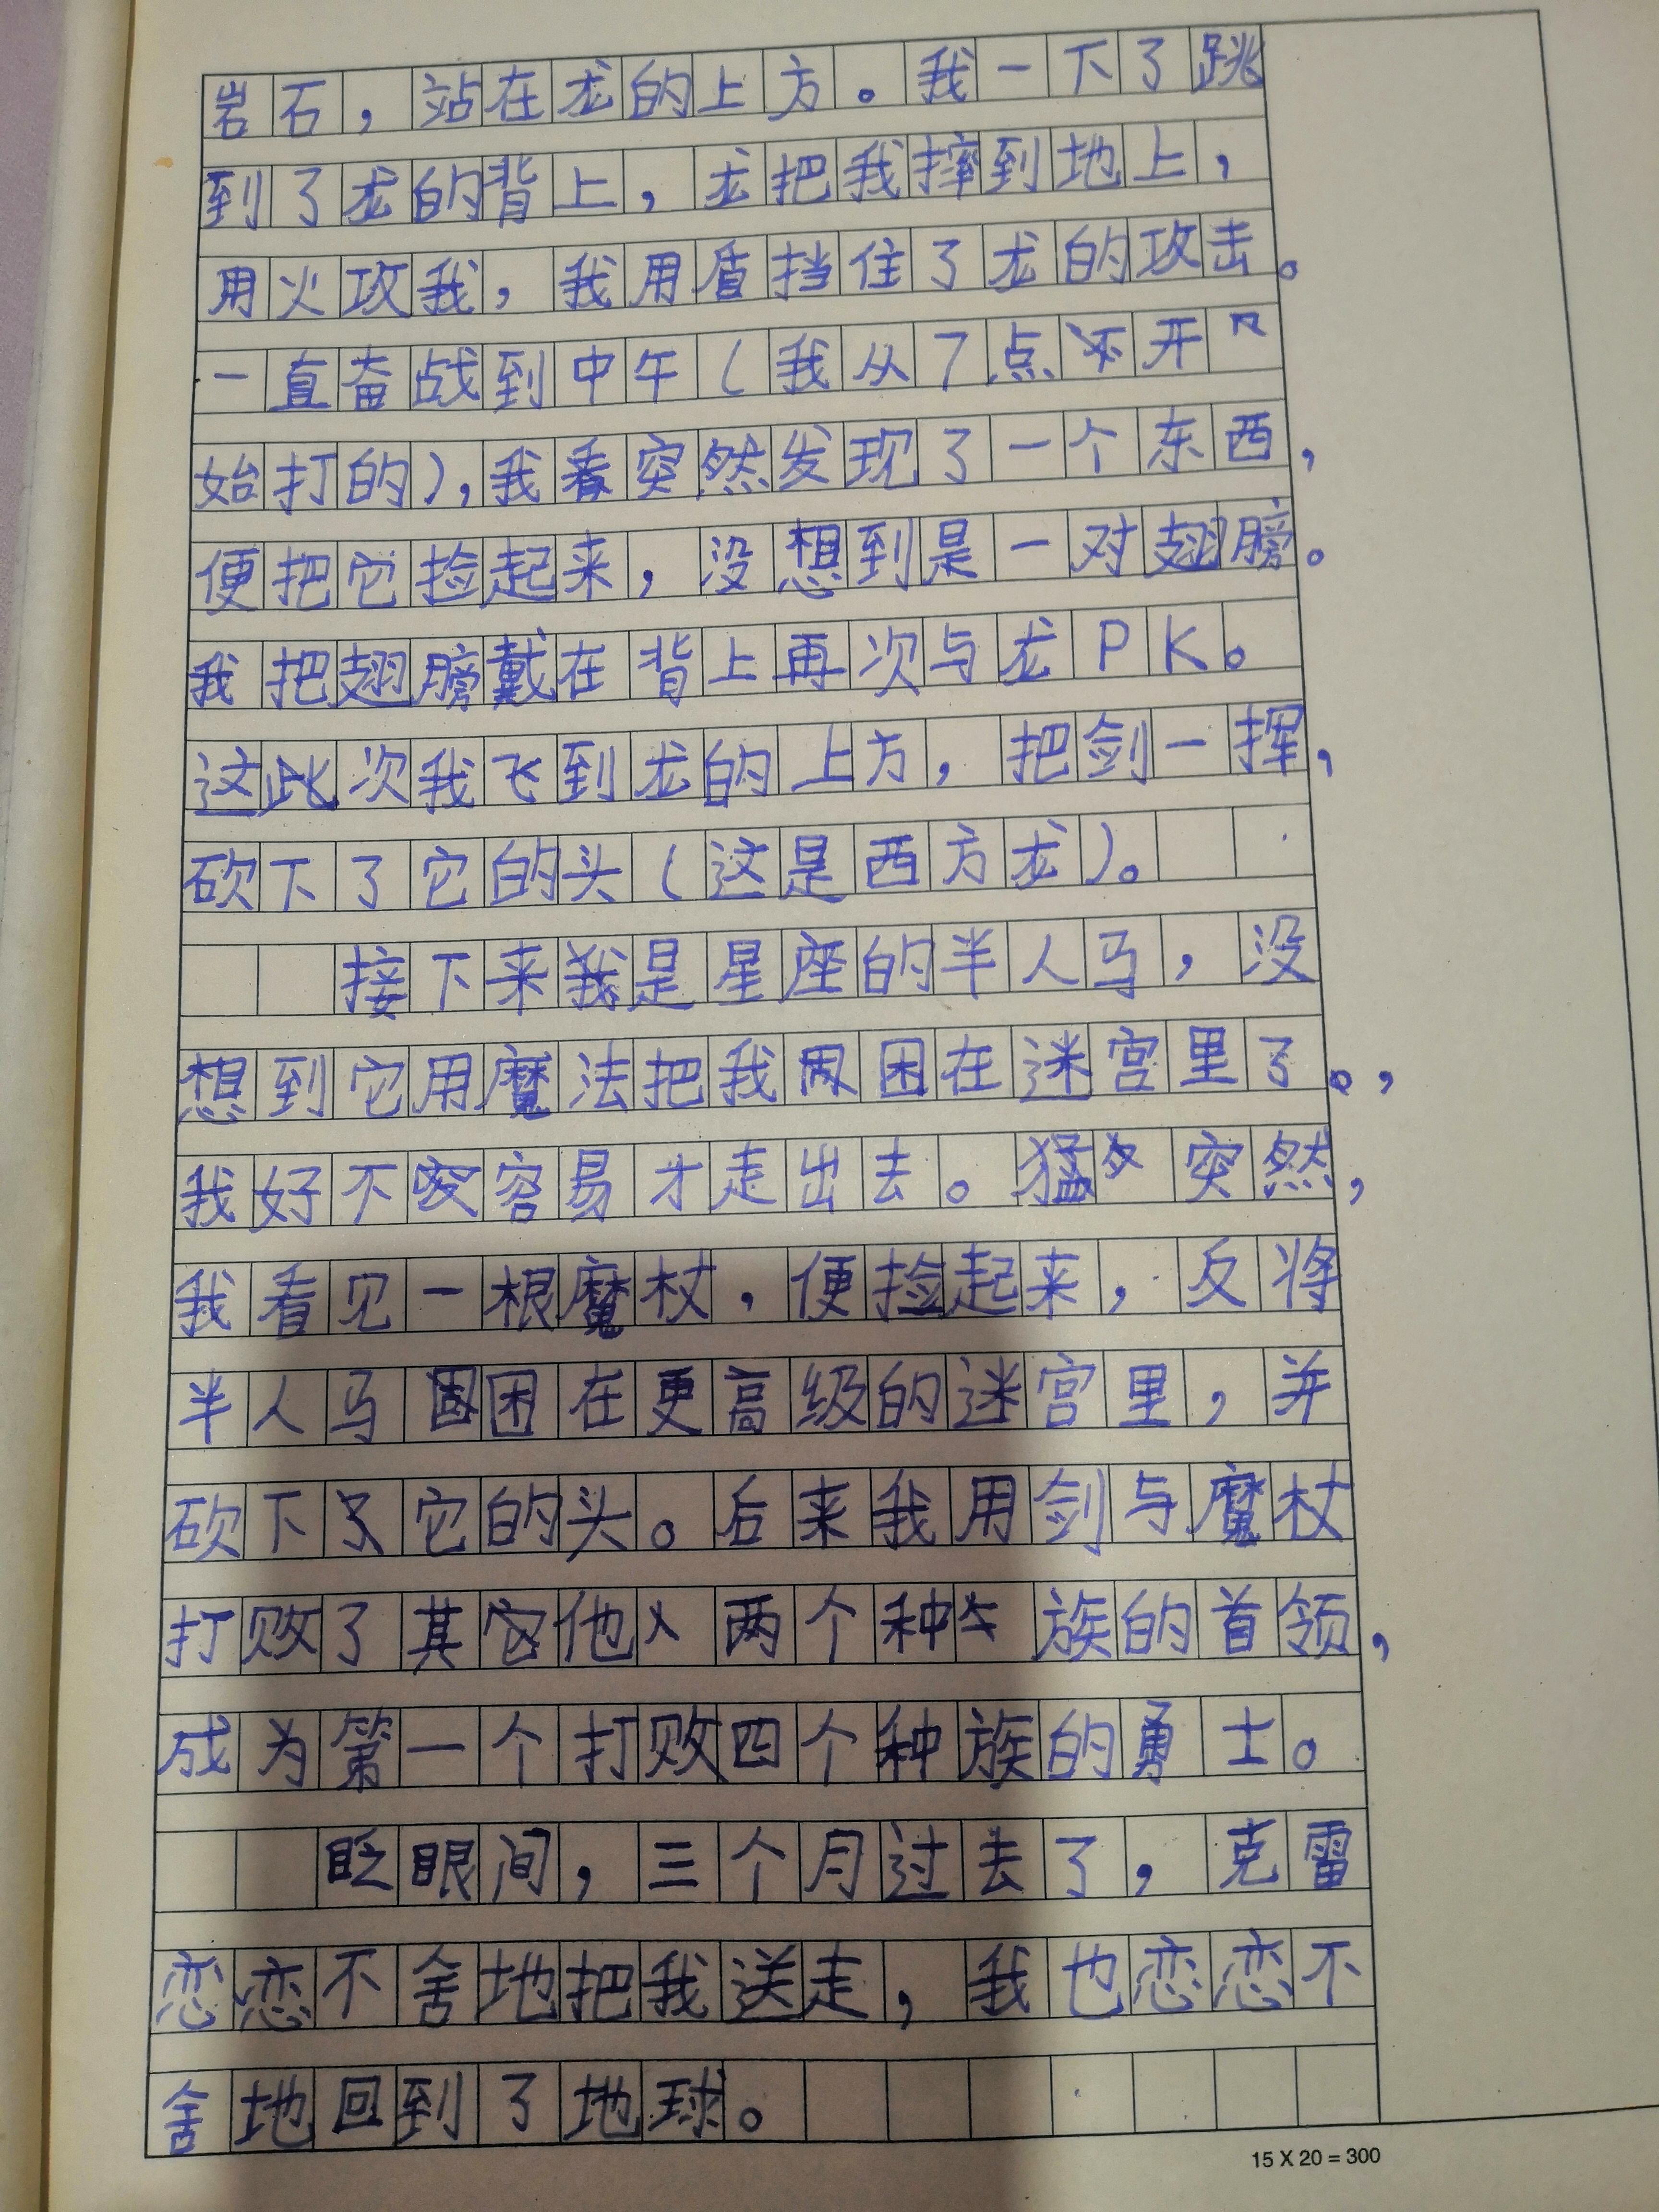 岩石，站在龙的上方。我一下了跳
到了龙的背上，龙把我摔到地上，
用火攻我，我用盾挡住了龙的攻击。
一直奋战到中午（我从7点开
始打的），我看突然发现了一个东西，
便把它捡起来，没想到是一对翅膀。
我把翅膀戴在背上再次与龙PK。
这此次我飞到龙的上方，把剑一挥，
砍下了它的头（这是西方龙）。
接下来我是星座的半人马，没
想到它用魔法把我困在迷宫里了。，
我好不容易才走出去。猛突然，
我看见一根魔杖，便捡起来，反将
半人马困在更高级的迷宫里，并
砍下了它的头。后来我用剑与魔杖
打败了其他两个种族的首领，
成为第一个打败四个种族的勇士。
眨眼间，三个月过去了，克雷
恋恋不舍地把我送走，我也恋恋不
舍地回到了地球。
15 X 20 = 300